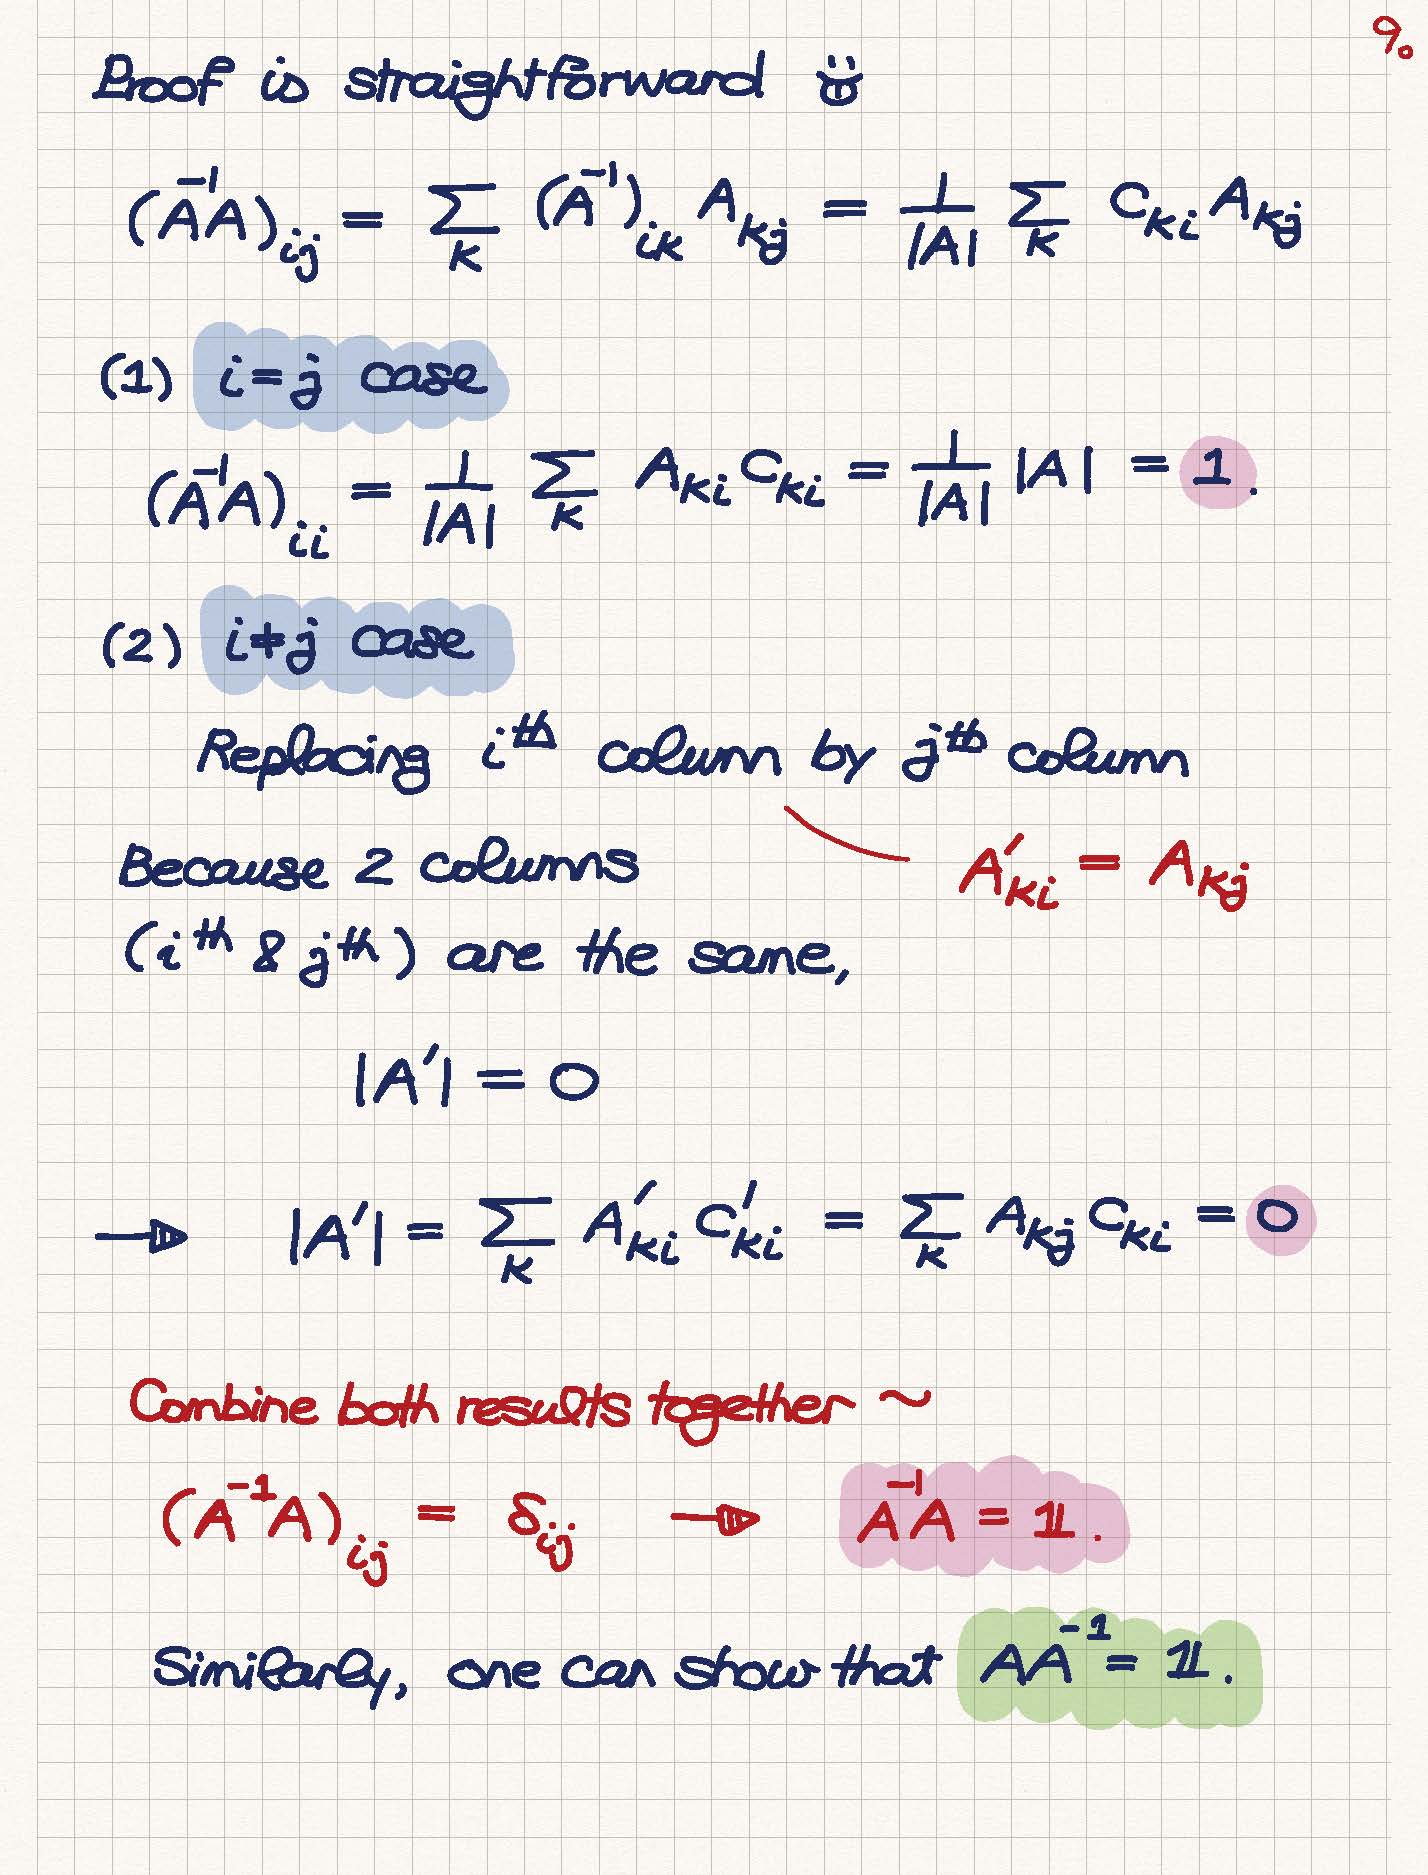 9.
Proof is straightforward
(A⁻¹A)ᵢⱼ = Σₖ (A⁻¹)ᵢₖ Aₖⱼ = 1/|A| Σₖ Cₖᵢ Aₖⱼ
(1) i=j case
(A⁻¹A)ᵢᵢ = 1/|A| Σₖ Aₖᵢ Cₖᵢ = 1/|A| |A| = 1.
(2) i≠j case
Replacing iᵗʰ column by jᵗʰ column
A′ₖᵢ = Aₖⱼ
Because 2 columns
(iᵗʰ & jᵗʰ) are the same,
|A′| = 0
→ |A′| = Σₖ A′ₖᵢ C′ₖᵢ = Σₖ Aₖⱼ Cₖᵢ = 0
Combine both results together ~
(A⁻¹A)ᵢⱼ = δᵢⱼ → A⁻¹A = 𝟙.
Similarly, one can show that AA⁻¹ = 𝟙.